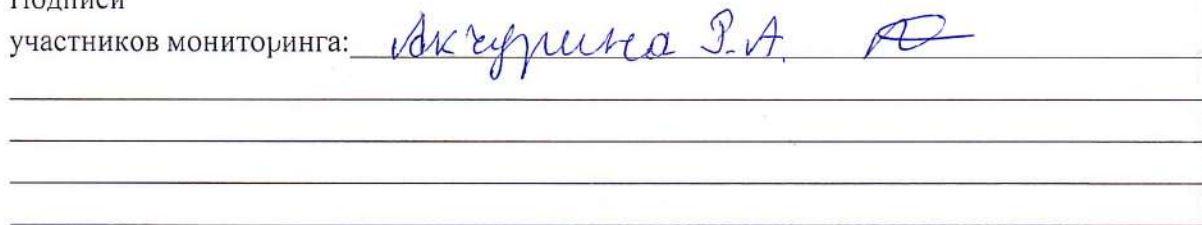 Подписи
участников мониторинга: Акчурина Р.А.